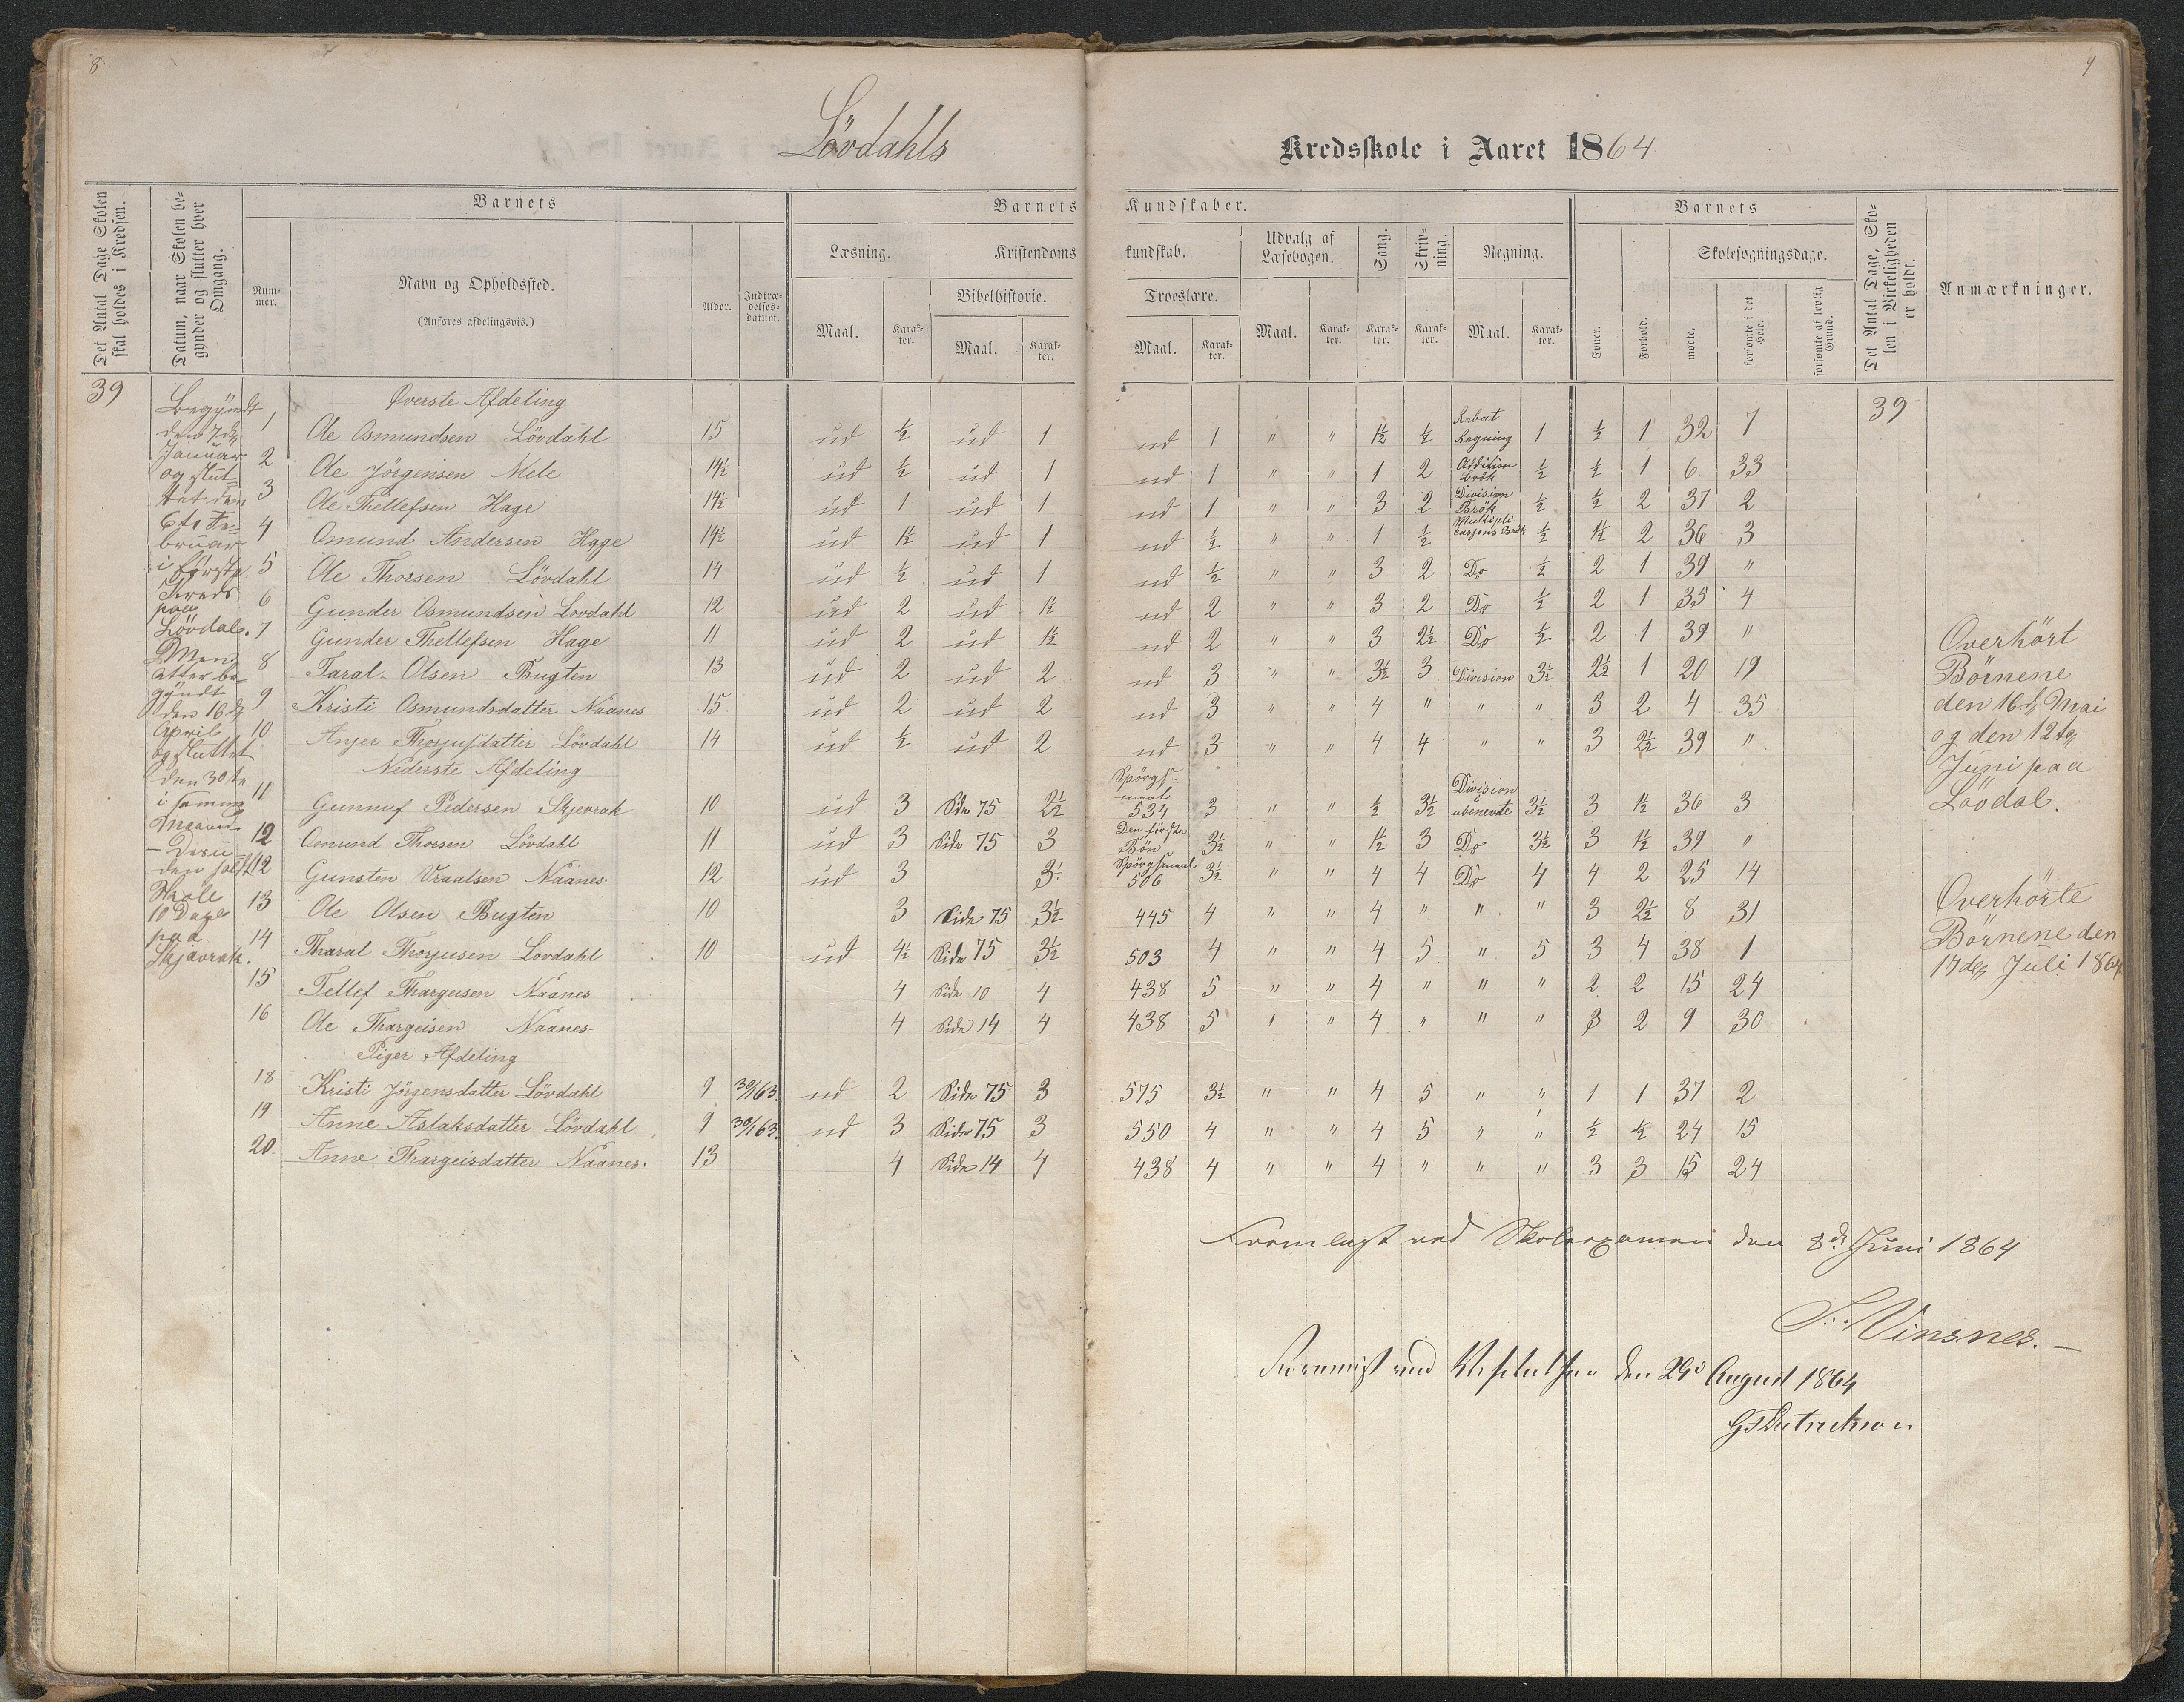 8
9
Lövdahls
Kredsskole i Aaret 1864
Det Antal Dage Skolen skal holdes i Kredsen.
Datum, naar Skolen begynder og slutter hver Omgang.
Barnets
Nummer.
Navn og Opholdssted.
(Anføres afdelingsvis.)
Alder.
Indtrædelsesdatum.
Barnets Kundskaber.
Læsning.
Maal.
Karakter.
Kristendomskundskab.
Bibelhistorie.
Maal.
Karakter.
Troeslære.
Maal.
Karakter.
Udvalg af Læsebogen.
Maal.
Karakter.
Sang.
Karakter.
Skrivning.
Karakter.
Regning.
Maal.
Karakter.
Barnets
Evner.
Forhold.
Skolesøgningsdage.
mødte.
forsømte i det Hele.
forsømte af lovlig Grund.
Det Antal Dage, Skolen i Virkeligheden er holdt.
Anmærkninger.
39
Begyndt
den 7de
Januar
og slut-
tet den
6te Fe-
bruar
i første
Kreds
paa
Lövdal.
Men
atter be-
gyndt
den 16de
April
og sluttet
den 30te
i samme
Maaned
Skole
10 Dage
paa
Skjævrak.
Øverste Afdeling
1 Ole Osmundsen Lövdahl 15 ud ½ ud 1 ud 1 " " 1½ ½ Rabat Regning 1 ½ 1 32 7 39
2 Ole Jörgensen Mele 14½ ud ½ ud 1 ud 1 " " 1 2 Addition Brök ½ ½ 1 6 33
3 Ole Thellefsen Hage 14½ ud 1 ud 1 ud 1 " " 3 2 Division Brök ½ ½ 2 37 2
4 Omund Andersen Hage 14½ ud 1½ ud 1 ud ½ " " 1 ½ Multipli casjons Brök ½ 1½ 2 36 3
5 Ole Thorsen Lövdahl 14 ud ½ ud 1 ud ½ " " 3 2 Do ½ 2 1 39 "
6 Gunder Osmundsen Lovdahl 12 ud 2 ud 1½ ud 2 " " 3 2 Do ½ 2 1 35 4
7 Gunder Thellefsen Hage 11 ud 2 ud 1½ ud 2 " " 3 2½ Do ½ 2 1 39 "
8 Taral Olsen Bugten 13 ud 2 ud 2 ud 3 " " 3½ 3 Division 3½ 2½ 1 20 19
9 Kristi Osmundsdatter Naanes 15 ud 2 ud 2 ud 3 " " 4 " " " 3 2 4 35
10 Anjer Thorjusdatter Lövdahl 14 ud ½ ud 2 ud 3 " " 4 4 " " 3 2½ 39 "
Nederste Afdeling
11 Gunnuf Pedersen Skjevrak 10 ud 3 Side 75 2½ Spörgsmaal 534 3 " " ½ 3½ Division ubenevte 3½ 3 1½ 36 3
12 Osmund Thorsen Lövdahl 11 ud 3 Side 75 3 Den første Bön 3½ " " 1½ 3 Do 3½ 3 1½ 39 "
12 Gunsten Vraalsen Naanes 12 ud 3 3½ Spörgsmaal 506 3½ " " 4 4 Do 4 4 2 25 14
13 Ole Olsen Bugten 10 3 Side 75 3½ 445 4 " " 4 " " " 3 2½ 8 31
14 Tharal Thorjusen Lovdahl 10 ud 4½ Side 75 3½ 503 4 " " 4 5 " 5 3 4 38 1
15 Tellef Thargeisen Naanes 4 Side 10 4 438 5 " " 4 " " " 2 2 15 24
16 Ole Thargeisen Naanes 4 Side 14 4 438 5 " " 4 " " " 3 2 9 30
Piger Afdeling
18 Kristi Jörgensdatter Lövdahl 9 30/1 63. ud 2 Side 75 3 575 3½ " " 4 5 " " 1 1 37 2
19 Anne Aslaksdatter Lövdahl 9 30/1 63. ud 3 Side 75 3 550 4 " " 4 5 " " ½ ½ 24 15
20. Anne Thargeisdatter Naanes. 13 4 Side 14 4 438 4 " " 4 " " " 3 3 15 24
Overhört
Börnene
den 16de Mai
og den 12te
Juni paa
Lövdal.
Overhörte
Börnene den
17de Juli 1864
Fremlagt ved Skoleexamen den 8de Juni 1864
Vinsnes.
ved den 29de August 1864